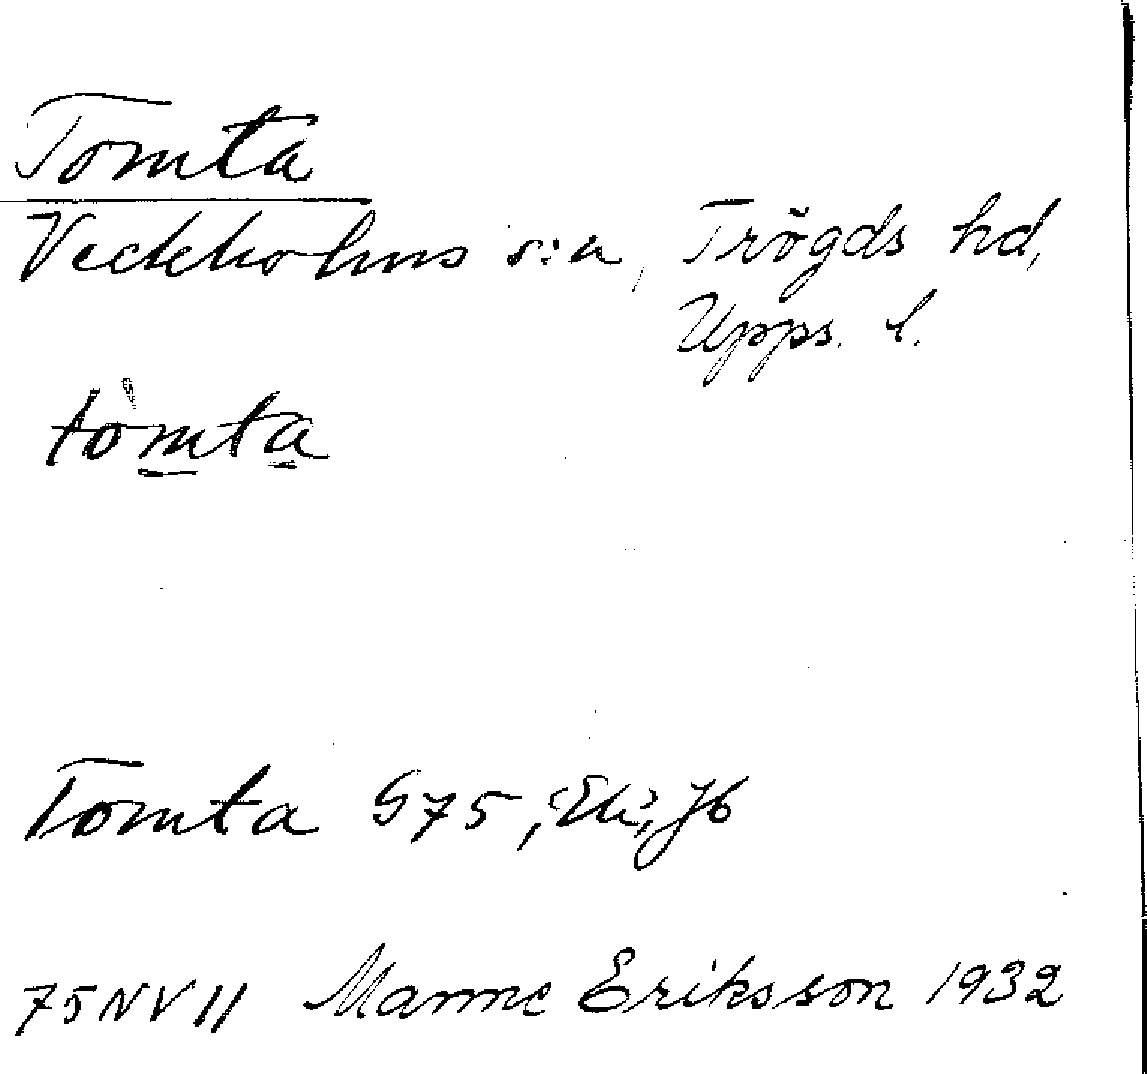 Tomta
Veckholms s:a, Trögds hd,
Upps. l.
tòmta
Tomta G75, Ek, Jb
75NV11 Manne Eriksson 1932